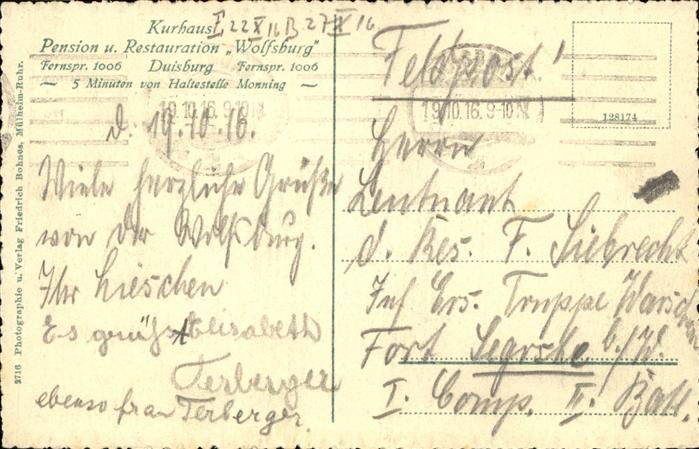 Kurhaus
Pension u. Restauration „Wolfsburg"
Fernspr. 1006 Duisburg Fernspr. 1006
~ 5 Minuten von Haltestelle Monning ~
d. 19.10.16.
Viele herzliche Grüße
von der Wolfsburg.
Ihr Lieschen
Es grüßt Elisabeth
Terberger
ebenso frau Terberger.
2716 Photographie u. Verlag Friedrich Bohnes, Mülheim-Ruhr.
19.10.16.9-10 N
Feldpost!
19.10.16.9-10 N
128174
Herrn
Leutnant
d. Res. F. Siebrecht
Inf Ers. Truppe Warschau
Fort b./W.
I. Comp. II. Batl.